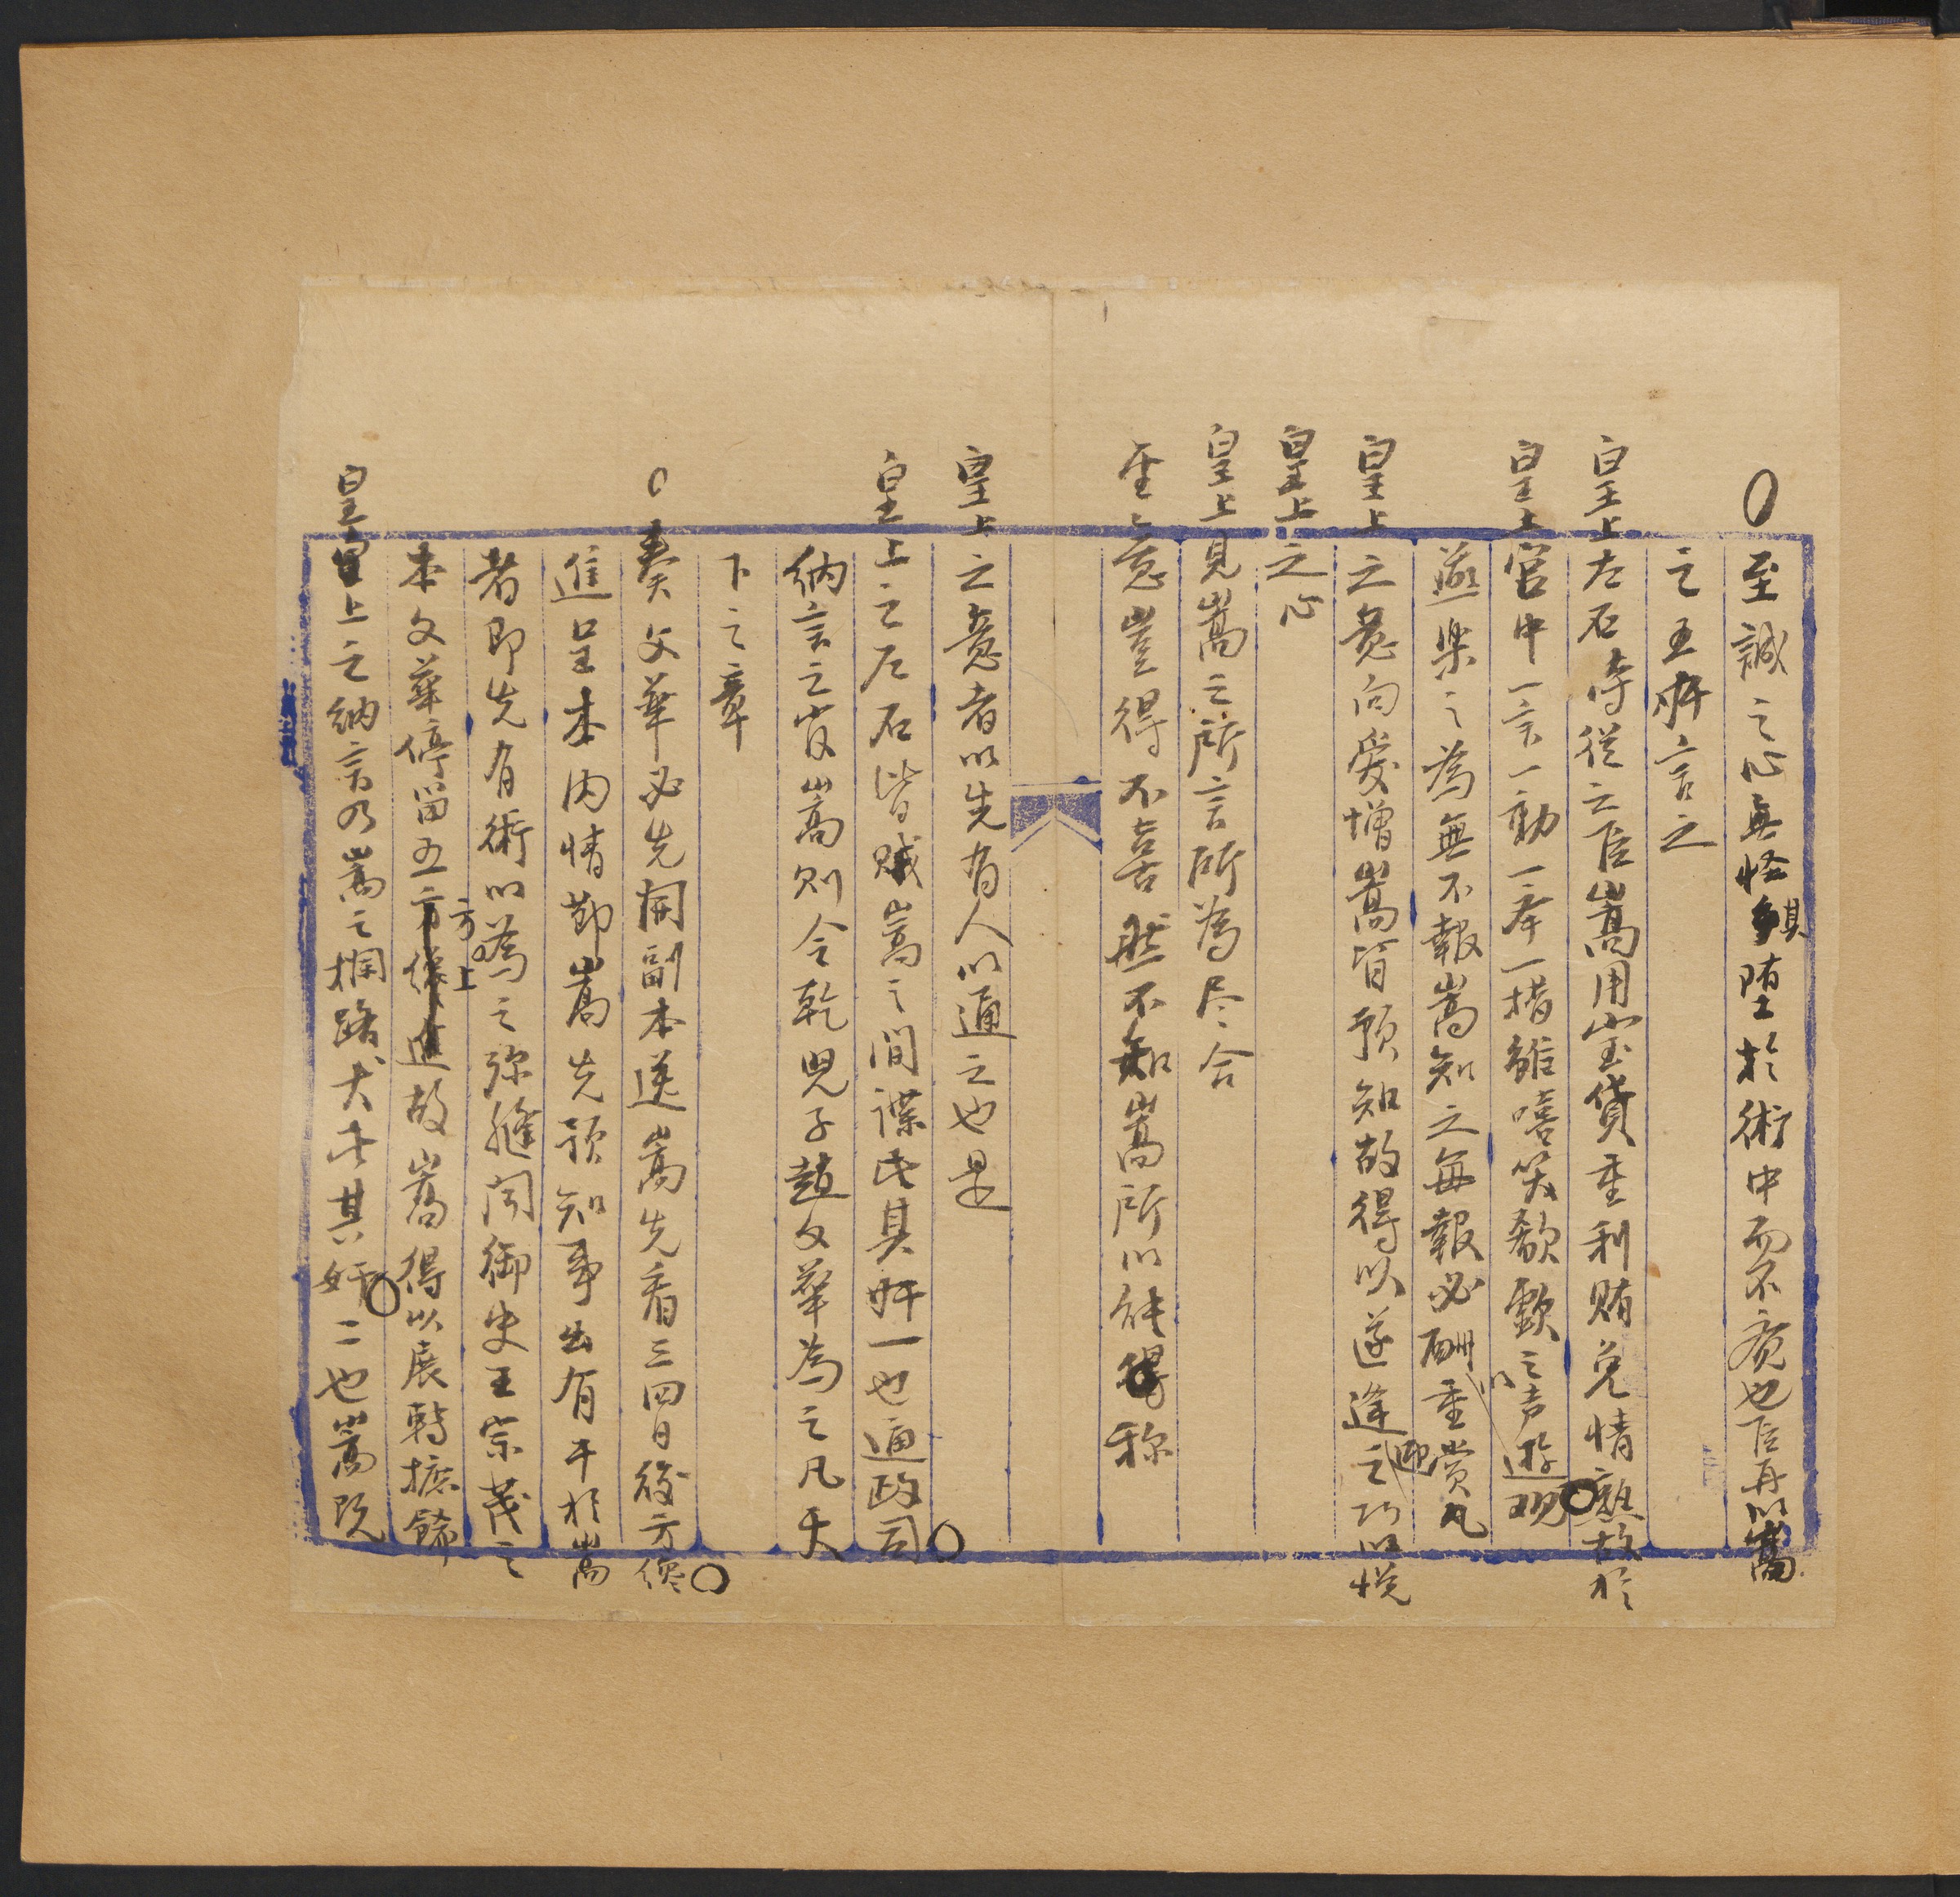 至誠之心無怪其堕於術中而不覚也臣再以嵩
之五奸言之
皇上左右侍従之臣嵩用宝貨重利賄免情熟故於
皇上宮中一言一動一举一措雖嘻笑欷歔之声遊观
燕楽之為無不報嵩知之每報必酬以重賞凡
皇上之意向愛憎嵩皆預知故得以遂逢迎之巧以悦
皇上之心
皇上見嵩之所言所為尽合
圣意豈得不喜然不知嵩所以能得称
皇上之意者以先有人以通之也是
皇上之左右皆賊嵩之間諜此其奸一也通政司
納言之官嵩则令乾兒子趙文華為之凡天
下之章
奏文華必先開副本送嵩先看三四日後方纔
進呈本内情節嵩先預知事出有干於嵩
者即先有術以為之弥縫聞御史王宗茂之
本文華停留五日方上故嵩得以展轉摭飾
皇上之納言乃嵩之攔路犬此其奸二也嵩既